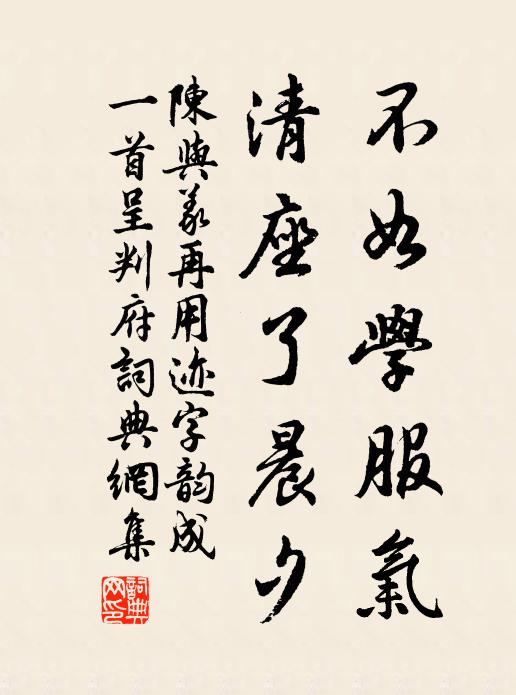 不如學服氣
清座了晨夕
陳與義再用迹字韵成
一首呈判府詞典網集
詞典網印